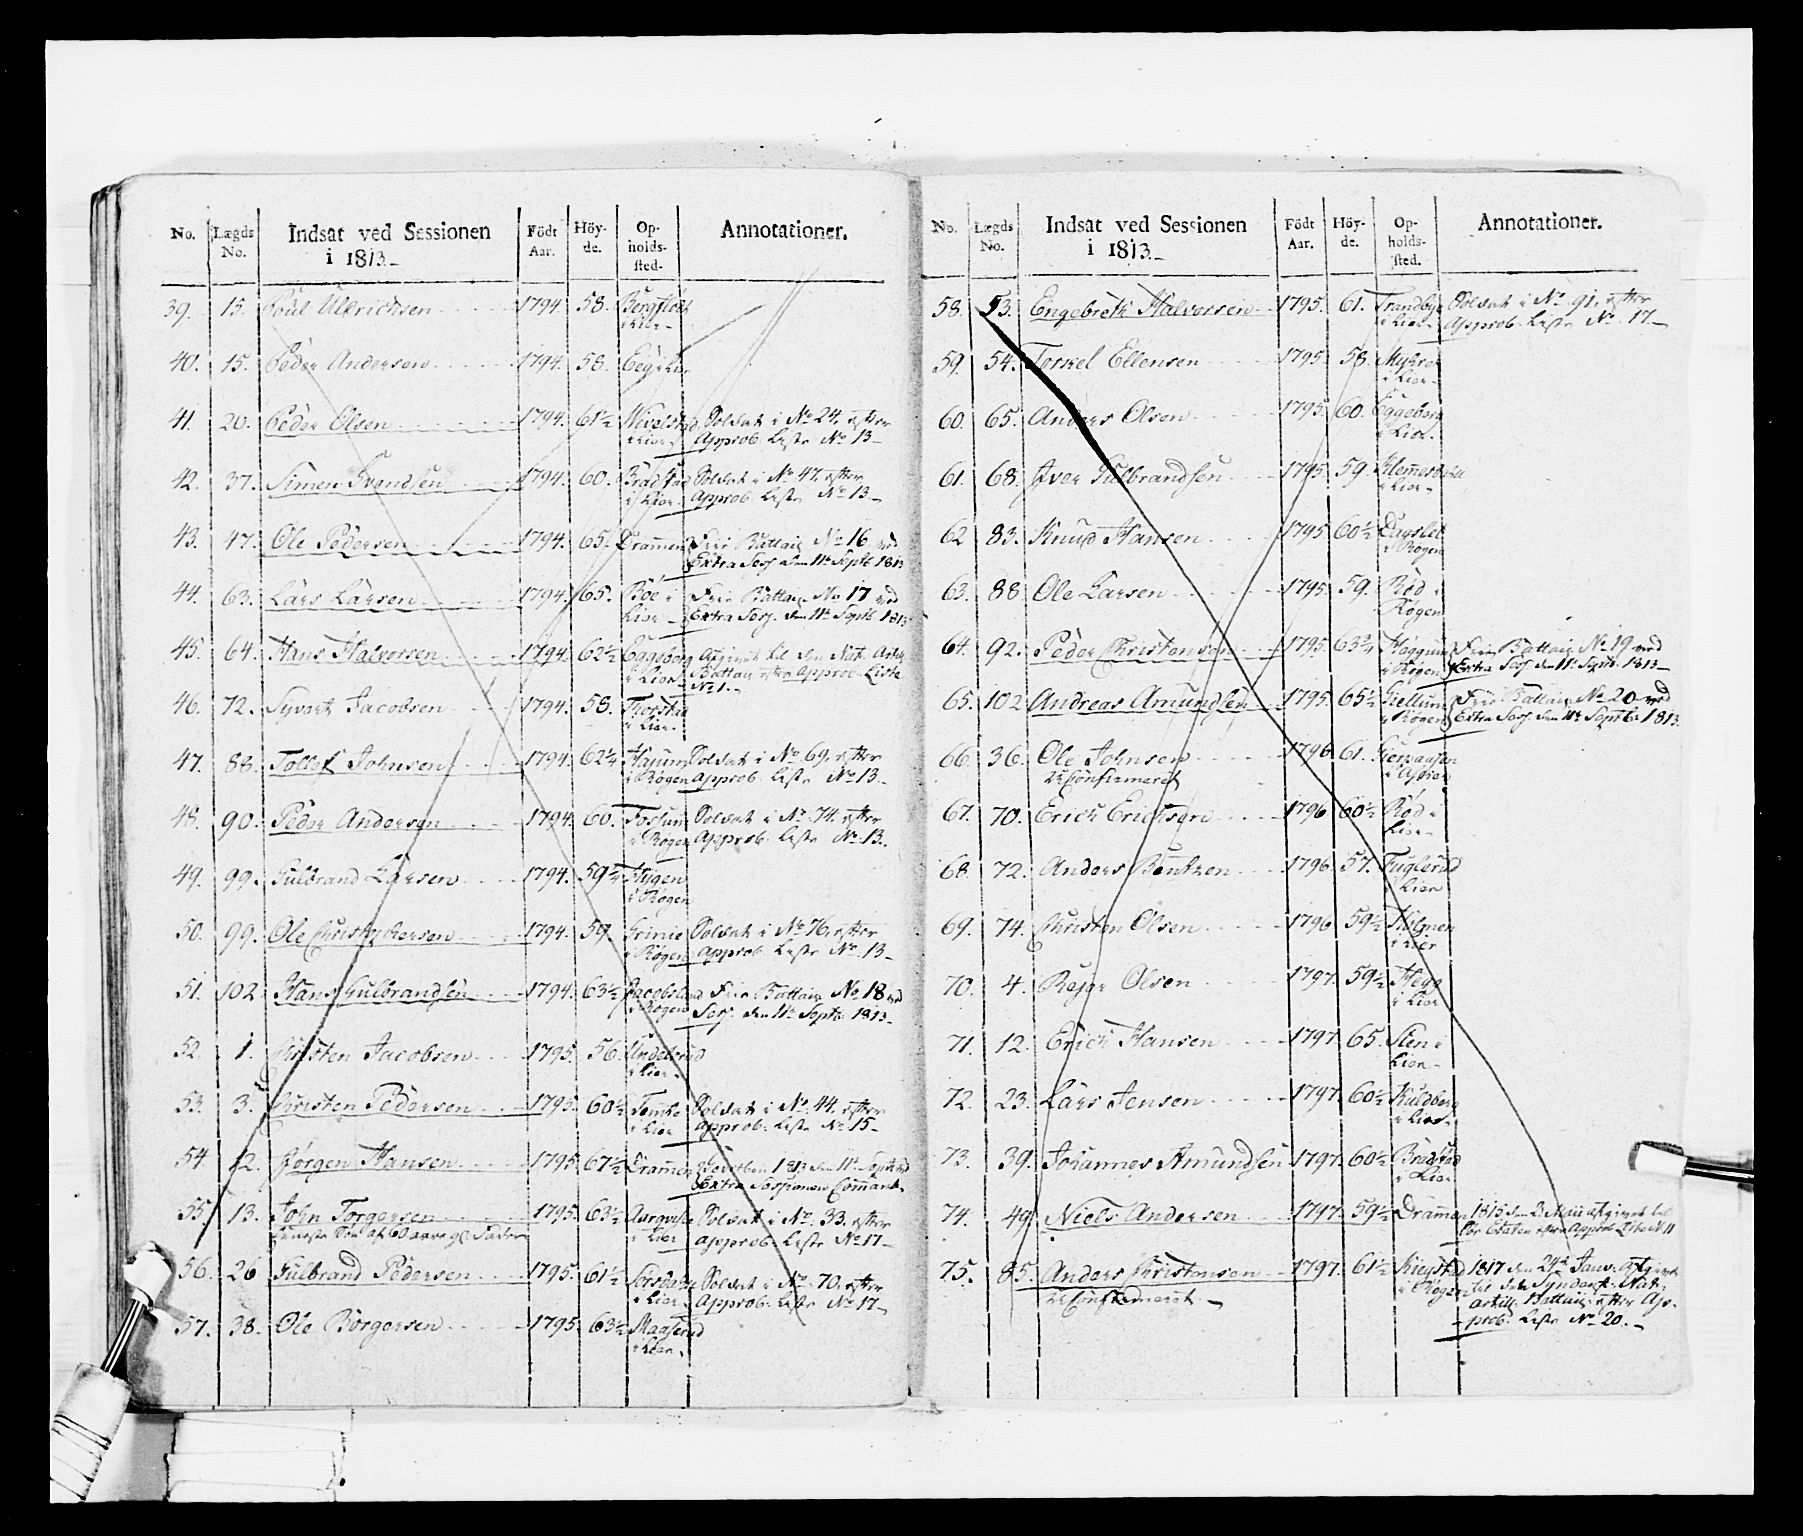 No. Lægds No. Indsat ved Sessionen i 1813. Födt Aar. Höy-de. Op-holds-sted. Annotationer.
39. 15. Poul Ullrichsen 1794. 58. Bergfløt
i Lier
40. 15. Peder Andersen 1794. 58. Eeg i Lier
41. 20. Peder Olsen 1794. 61½ Nivelsted Soldat i No 24, efter
i Lier Approb. Liste No 13
42. 37. Simen Svendsen 1794. 60. Bradstad Soldat i No 47. efter
i Lier Approb. Liste No 13
43. 47. Ole Pedersen 1794. 65. Drammen Frie Battail No 16 ved
Extra Sess. den 11te Septb 1813
44. 63. Lars Larsen 1794. 65. Böe i Frie Battail. No 17 ved
Lier Extra Sess. den 11te Septb 1813
45. 64. Hans Halvorsen 1794. 62½ Eggeberg Afgivet til den Nat. Artil.
i Lier Battail. efter Approb. Liste
No 1.
46. 72. Syvert Jacobsen 1794. 58.
i Lier.
47. 88. Tollef Johnsen 1794. 62¼ Hajum Soldat i No 69, efter
i Røgen Approb. Liste No 13
48. 90. Peder Andersen 1794. 60. Fossum Soldat i No 74. efter
i Røgen Approb. Liste No 13.
49. 99. Gulbrand Larsen 1794. 59¼ Hygen
i Røgen
50. 99. Ole Christophersen 1794. 59. Grinie Soldat i No 76, efter
i Røgen Approb. Liste No. 13
51. 102 Hans Gulbrandsen 1794. 63½ Jacobsland Frie Battail No 18 ved
i Røgen Sess. den 11te Septb 1813
52. 1. Christen Jacobsen 1795. 56. Undelsrud
i Lier
53. 3. Christen Pedersen 1795. 60½ Tomte Soldat i No. 44. efter
i Lier Approb. Liste No 15
54 12. Jørgen Hansen 1795. 67½ Drammen 1813 den 11te Septb ved
Extra Sessionen
55. 13. John Torgersen 1795. 63½ Soldat i No. 33. efter
eeneste Søn af 60 aars gl. Fader i Lier Approb. Liste No 17
56. 26 Gulbrand Pedersen 1795. 61½ Soldat i No. 70. efter
i Lier Approb. Liste No 17
57. 38. Ole Börgersen 1795. 63½ Maaserud
i Lier.
No. Lægds No. Indsat ved Sessionen i 1813. Födt Aar. Höy-de. Op-holds-sted. Annotationer.
58. 53. Engebreth Halvorsen 1795. 61. Trandbye Soldat i No 91, efter
i Lier Approb. Liste No. 17.
59. 54. Torkel Ellensen 1795. 58.
i Lier
60. 65. Anders Olsen 1795. 60. Eggeberg
i Lier.
61. 68. Iver Gulbrandsen 1795. 59.
i Lier
62 83. Knud Hansen 1795. 60½ Daghslet
i Røgen
63. 88 Ole Larsen 1795. 59. Rød i
Røgen
64. 92. Peder Christensen 1795. 63¾ Høggum Frie Battail No 19 ved
i Røgen Extra Sess. den 11te Septb. 1813
65. 102 Andreas Amundsen 1795. 65½ Gjellum Frie Battail No 20 ved
i Røgen Extra Sess. den 11te Septbr 1813.
66. 36. Ole Johnsen 1796. 61.
Uconfirmeret
67. 70. Erich Erichsen 1796 60½ Rød i
Lier
68. 72. Anders Bentzen 1796. 57. Fuglerud
i Lier
69. 74. Christen Olsen 1796 59½
i Lier
70. 4. Rejer Olsen 1797. 59½ Hegg
i Lier
71. 12. Erich Hansen 1797. 65. Steen i
Lier
72. 23. Lars Jensen 1797. 60½ Kuldberg
i Lier
73. 39. Johannes Amundsen 1797. 60½ Bradstad
i Lier
74. 49. Niels Andersen 1797. 59½ Drammen 1815 den 2. Mai afgivet til
Söe Etaten efter Approb. Liste No 11
75. 85. Anders Christensen 1797. 61½ 1817 den 24de Janv. afgivet
Uconfirmeret i Røgen til det Syndenf. Nat.
Artill. Battail. efter Ap-
prob. Liste No 20.